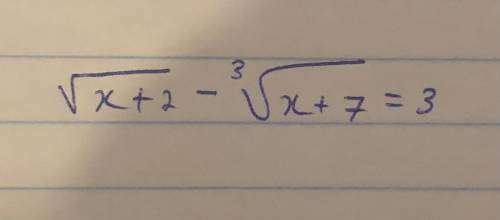 √(x+2) - ³√(x+7) = 3